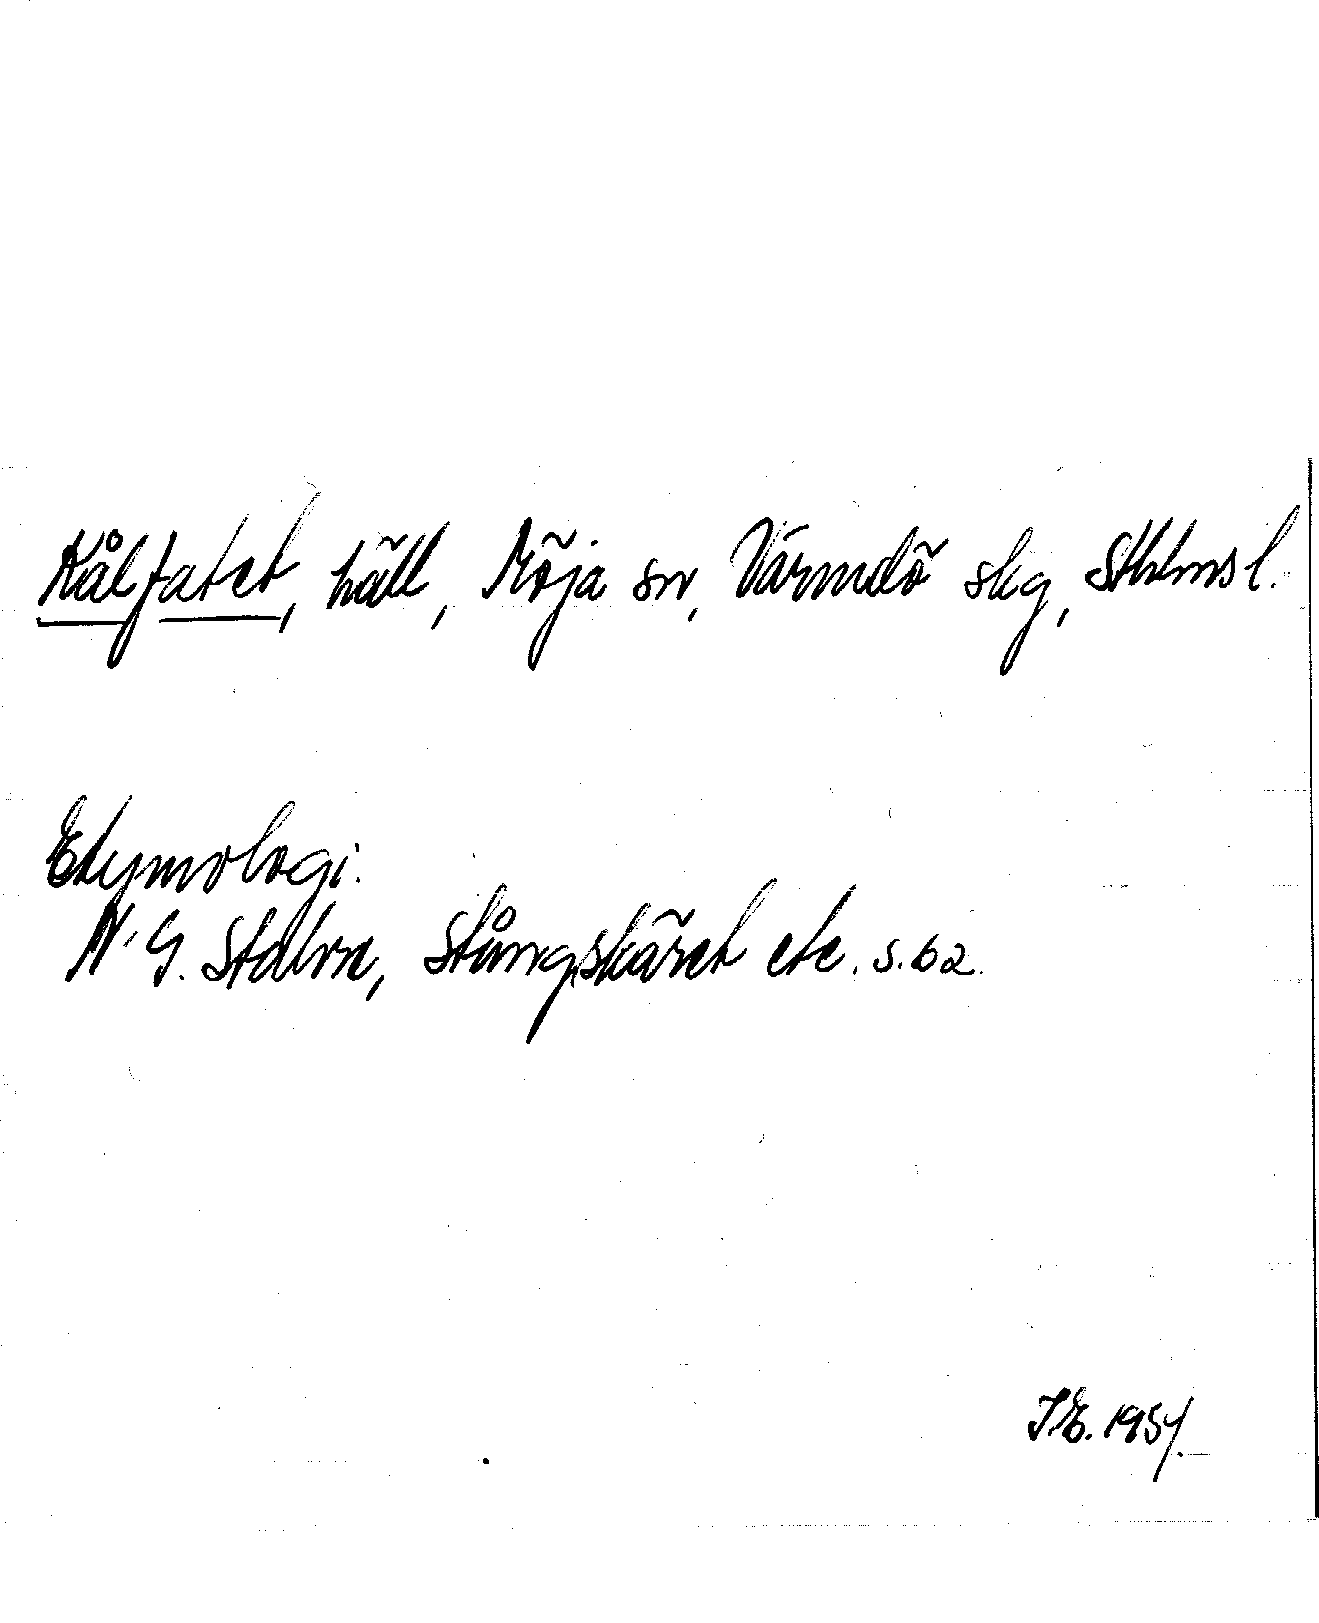 Kålfatet, häll, Möja sn, Värmdö skg, Sthlms l.
Etymologi:
N. G. Stahre, Stångskäret etc. s. 62.
I.E. 1957.